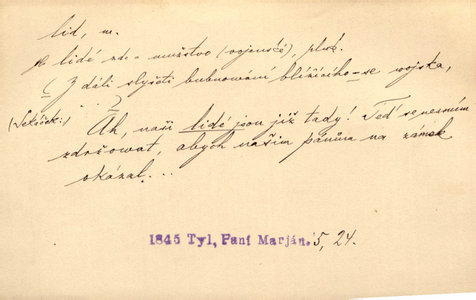 lid, m.
lidé zde = mužstvo (vojenské), plur.
(Z dáli slyšeti bubnování blížícího-se vojska,
. . . )
Ah, naši lidé jsou již tady! Teď se nesmím
zdržovat, abych našim pánům na zámek
okázal...
1845 Tyl, Paní Marján. 5, 24.